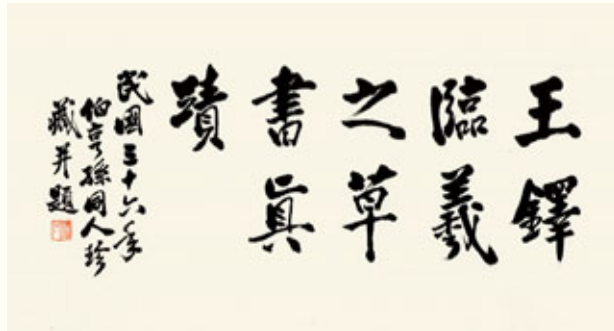 王鐸
臨羲
之草
書真
蹟
民國三十六年
伯亨孫同人珍
藏并題